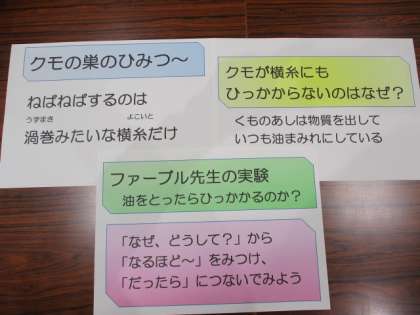 クモの巣のひみつ～
ねばねばするのは
うずまき よこいと
渦巻みたいな横糸だけ
クモが横糸にも
ひっかからないのはなぜ？
くものあしは物質を出して
いつも油まみれにしている
ファーブル先生の実験
油をとったらひっかかるのか？
「なぜ、どうして？」から
「なるほど～」をみつけ、
「だったら」につないでみよう